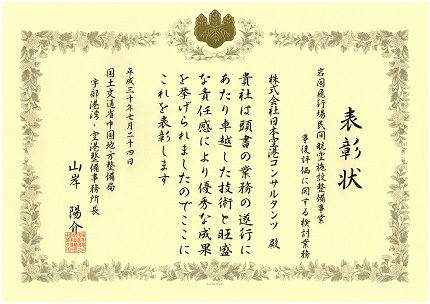 表彰状
岩国飛行場民間航空施設整備事業
事後評価に関する検討業務
株式会社日本空港コンサルタンツ 殿
貴社は頭書の業務の遂行に
あたり卓越した技術と旺盛
な責任感により優秀な成果
を挙げられましたのでここに
これを表彰します
平成三十年七月二十四日
国土交通省中国地方整備局
宇部港湾・空港整備事務所長
山岸 陽介